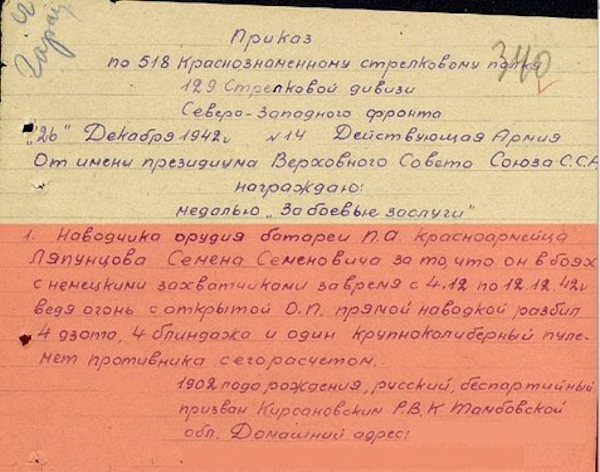 Гарац
340
Приказ
по 518 Краснознаменному стрелковому полку
129 Стрелковой дивизи
Северо-Западного фронта
"26" Декабря 1942г N14 Действующая Армия
От имени президиума Верховного Совета Союза С.С.Р
награждаю:
медалью „За боевые заслуги"
1. Наводчика орудия батареи П.А. красноармейца
Ляпунцова Семена Семеновича за то, что он в боях
с немецкими захватчиками за время с 4.12 по 12.12.42г
ведя огонь с открытой О.П. прямой наводкой разбил
4 дзота, 4 блиндажа и один крупнокалиберный пуле-
мет противника с его расчетом.
1902 года рождения, русский, беспартийный
призван Кирсановским Р.В.К Тамбовской
обл. Домашний адрес: